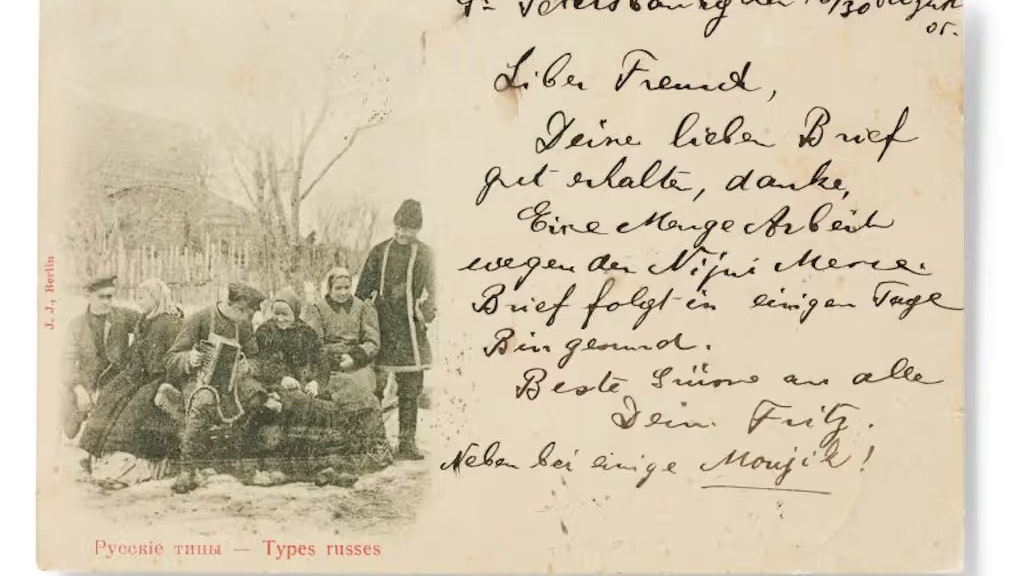 St Petersbourg den /30 August
05.
Liber Freund,
Deine lieben Brief
gut erhalten, danke,
Eine Menge Arbeit
wegen der Nijni Messe.
Brief folgt in einigen Tage
Bin gesund.
Beste Grüsse an alle
Dein Fritz.
Neben bei einige Moujik!
J. J., Berlin
Русскіе типы — Types russes